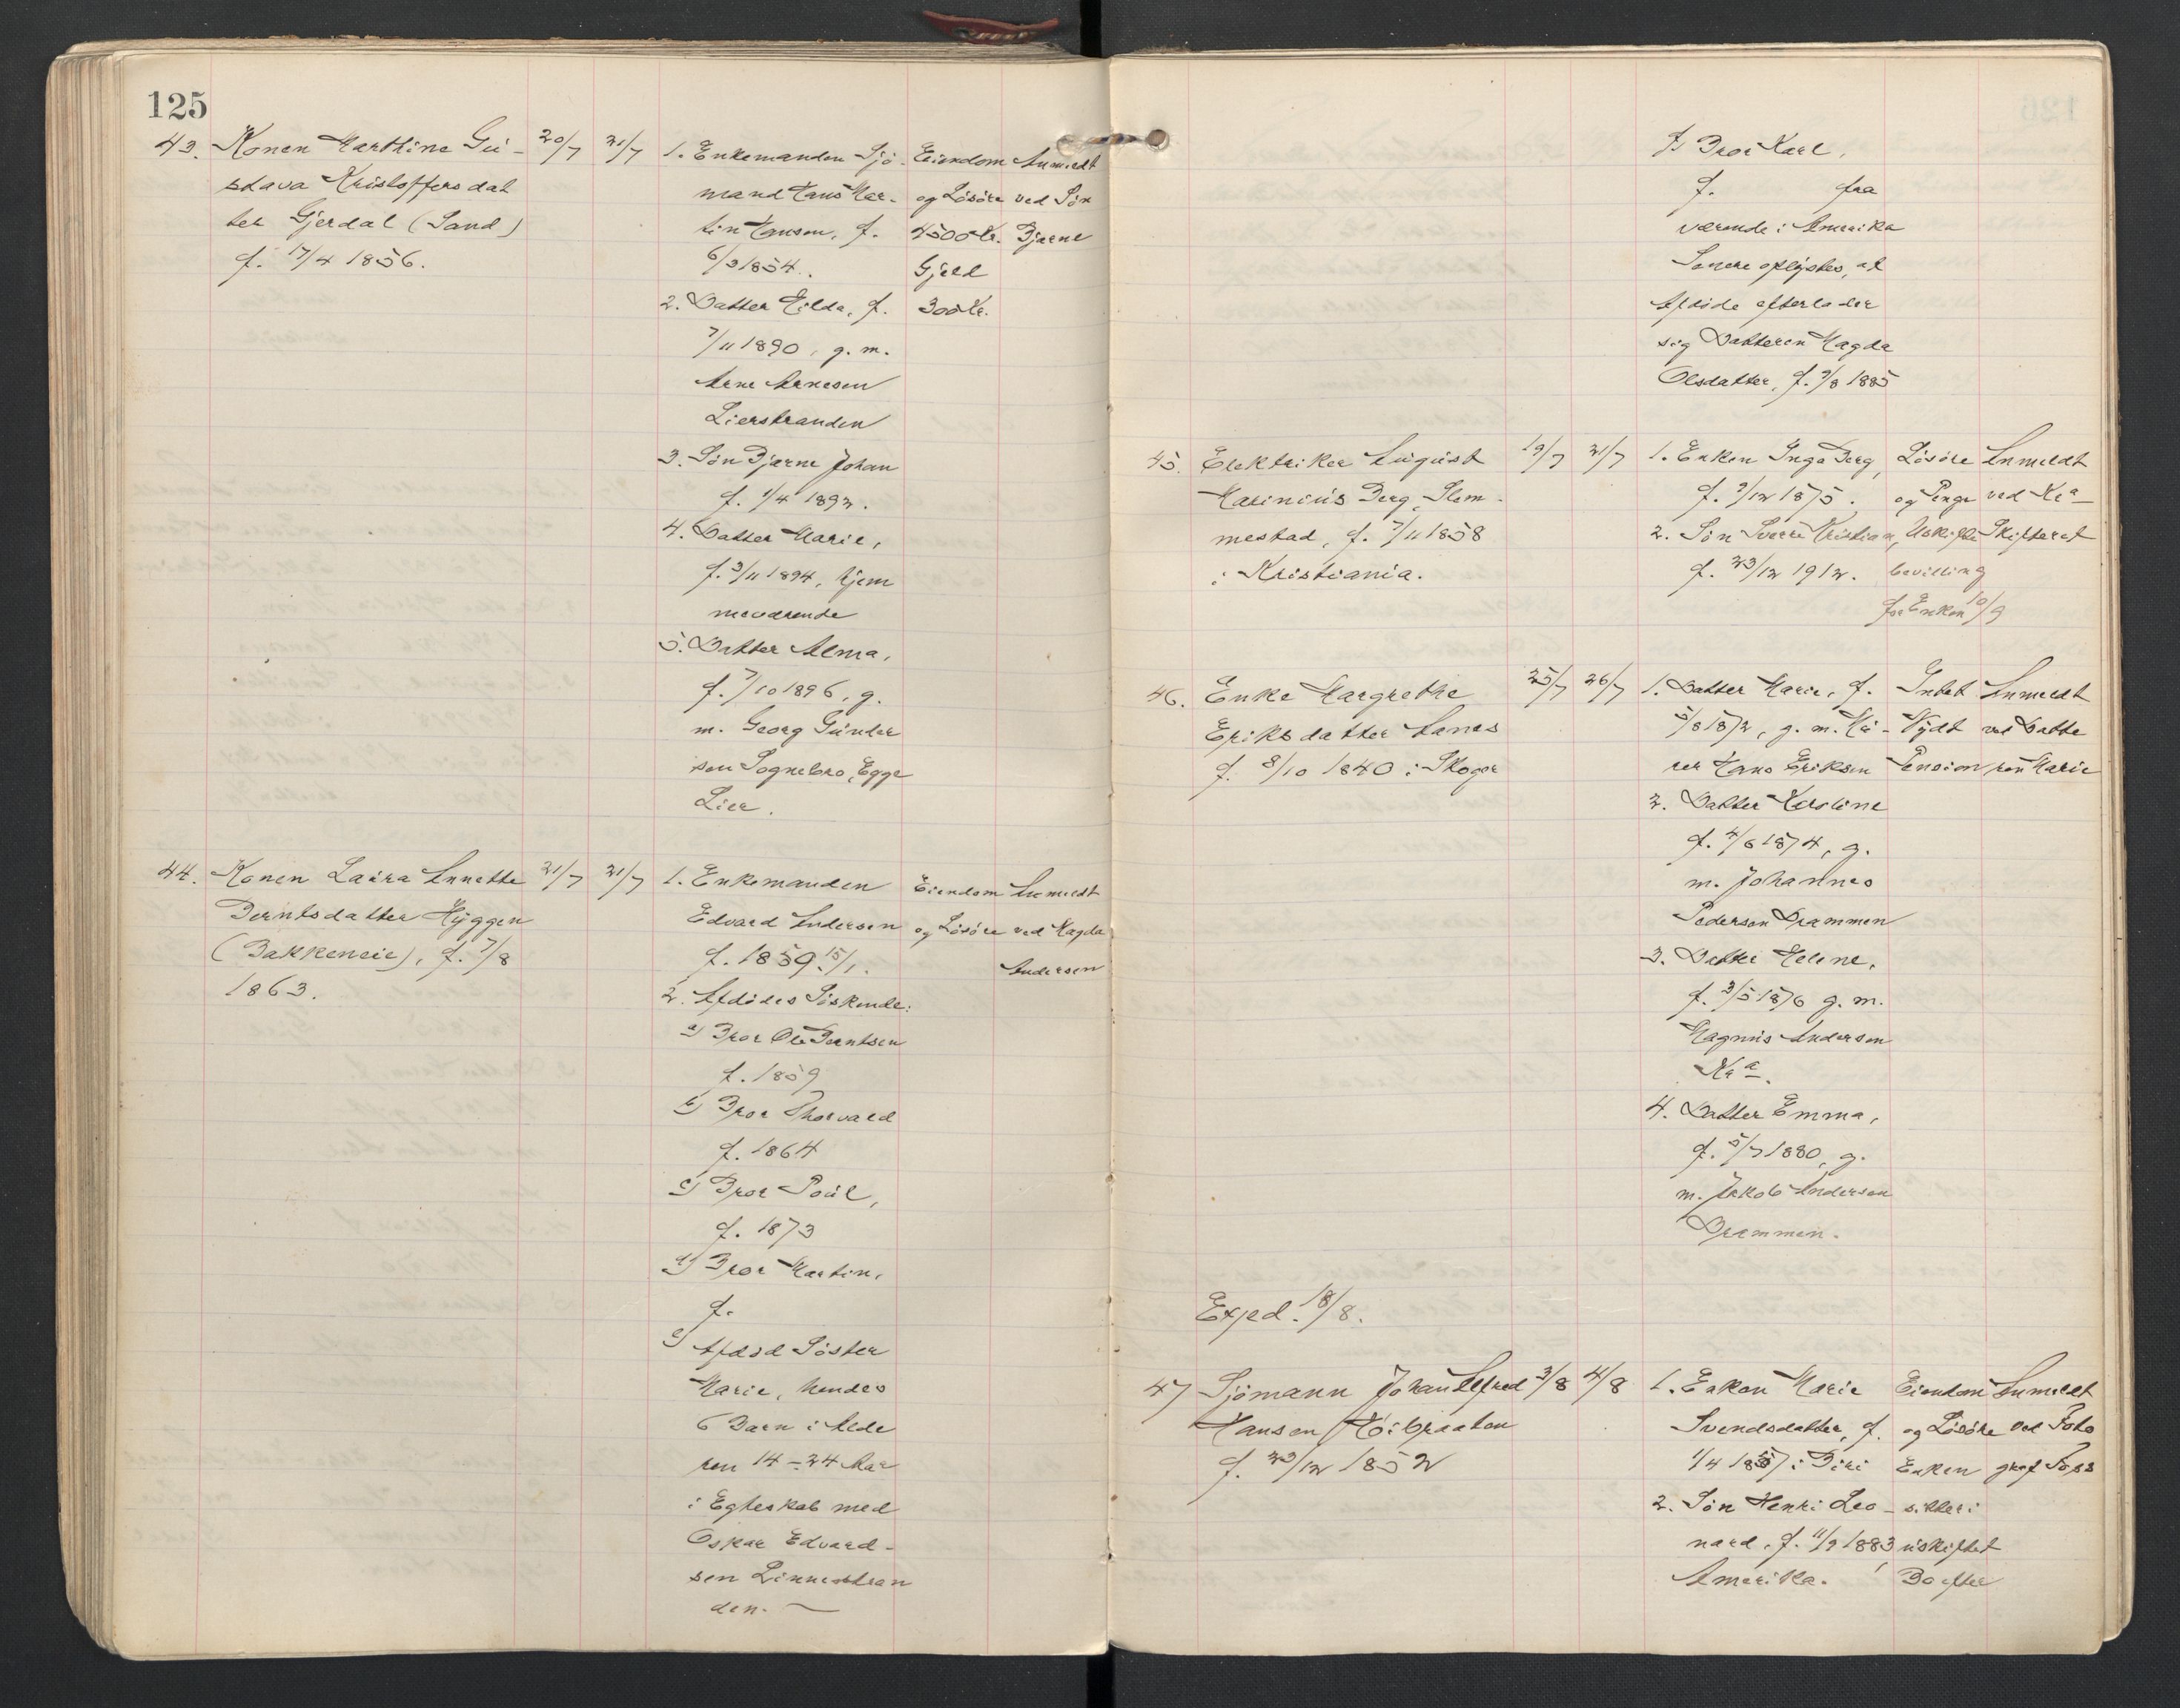 125
43. Konen Marthine Gu-
stava Kristoffersdat
ter Gjerdal (Sand)
f. 17/4 1856.
20/7 21/7
1. Enkemanden Sjö-
mand Hans Mar-
tin Hansen, f.
6/3 1854.
2. Datter Hilda, f.
7/11 1890, g. m.
Arne Arnesen
Lierstranden
3. Sön Bjarne Johan
f. 1/4 1892.
4. Datter Marie,
f. 3/11 1894, hjem
meværende
5. Datter Alma,
f. 7/10 1896, g.
m. Georg Gunder
sen Sognebro, Egge
Lier.
Eiendom
og Lösöre
4500 Kr.
Gjeld
300 Kr.
Anmeldt
ved Sön
Bjarne
44. Konen Laura Annette
Berntsdatter Hyggen
(Bakkeneie), f. 7/8
1863.
21/7 21/7
1. Enkemanden
Edvard Andersen
f. 1859 15/1.
2. Afdödes Söskende:
a) Bror Ole Berntsen
f. 1859
b) Bror Thorvald
f. 1864
c) Bror Poul,
f. 1873
d) Bror Martin,
f.
e) Afdöd Söster
Marie, hendes
6 Barn i Alde
ren 14-24 Aar
i Egteskab med
Oskar Edvard-
sen Linnestran
den.
Eiendom
og Lösöre
Anmeldt
ved Magda
Andersen
f) Bror Karl,
f. fra
værende i Amerika
Senere oplystes, at
Afdöde efterlader
sig Datteren Magda
Olsdatter, f. 9/8 1885
45. Elektriker August
Marinius Berg, Slem-
mestad, f. 7/11 1858
i Kristiania.
19/7 21/7
1. Enken Inga Berg,
f. 9/12 1875.
2. Sön Sverre Kristian,
f. 23/12 1912.
Lösöre
og Penge
Uskifte
bevilling
for Enken 10/9
Anmeldt
ved Kr.a
Skifteret
46. Enke Margrethe
Eriksdatter Sanes
f. 8/10 1840 i Skoger
25/7 26/7
1. Datter Marie, f.
5/8 1872, g. m. Mu-
rer Hans Eriksen
2. Datter Karoline
f. 4/6 1874, g.
m. Johannes
Pedersen Drammen
3. Datter Helene,
f. 3/5 1876 g. m.
Magnus Andersen
Kr.a.
4. Datter Emma,
f. 5/7 1880, g.
m. Jakob Andersen
Drammen.
Intet
Nydt
Pension
Anmeldt
ved Datte
ren Marie
Exped. 18/8.
47 Sjömann Johan Alfred
Hansen Höibraaten
f. 23/12 1852
3/8 4/8
1. Enken Marie
Svendsdatter, f.
1/4 1857 i Biri
2. Sön Henri Leo-
nard, f. 11/9 1883,
Amerika.
Eiendom
og Lösöre
Enken
sitter i
uskiftet
Bo efter
Anmeldt
ved Foto
graf Foss